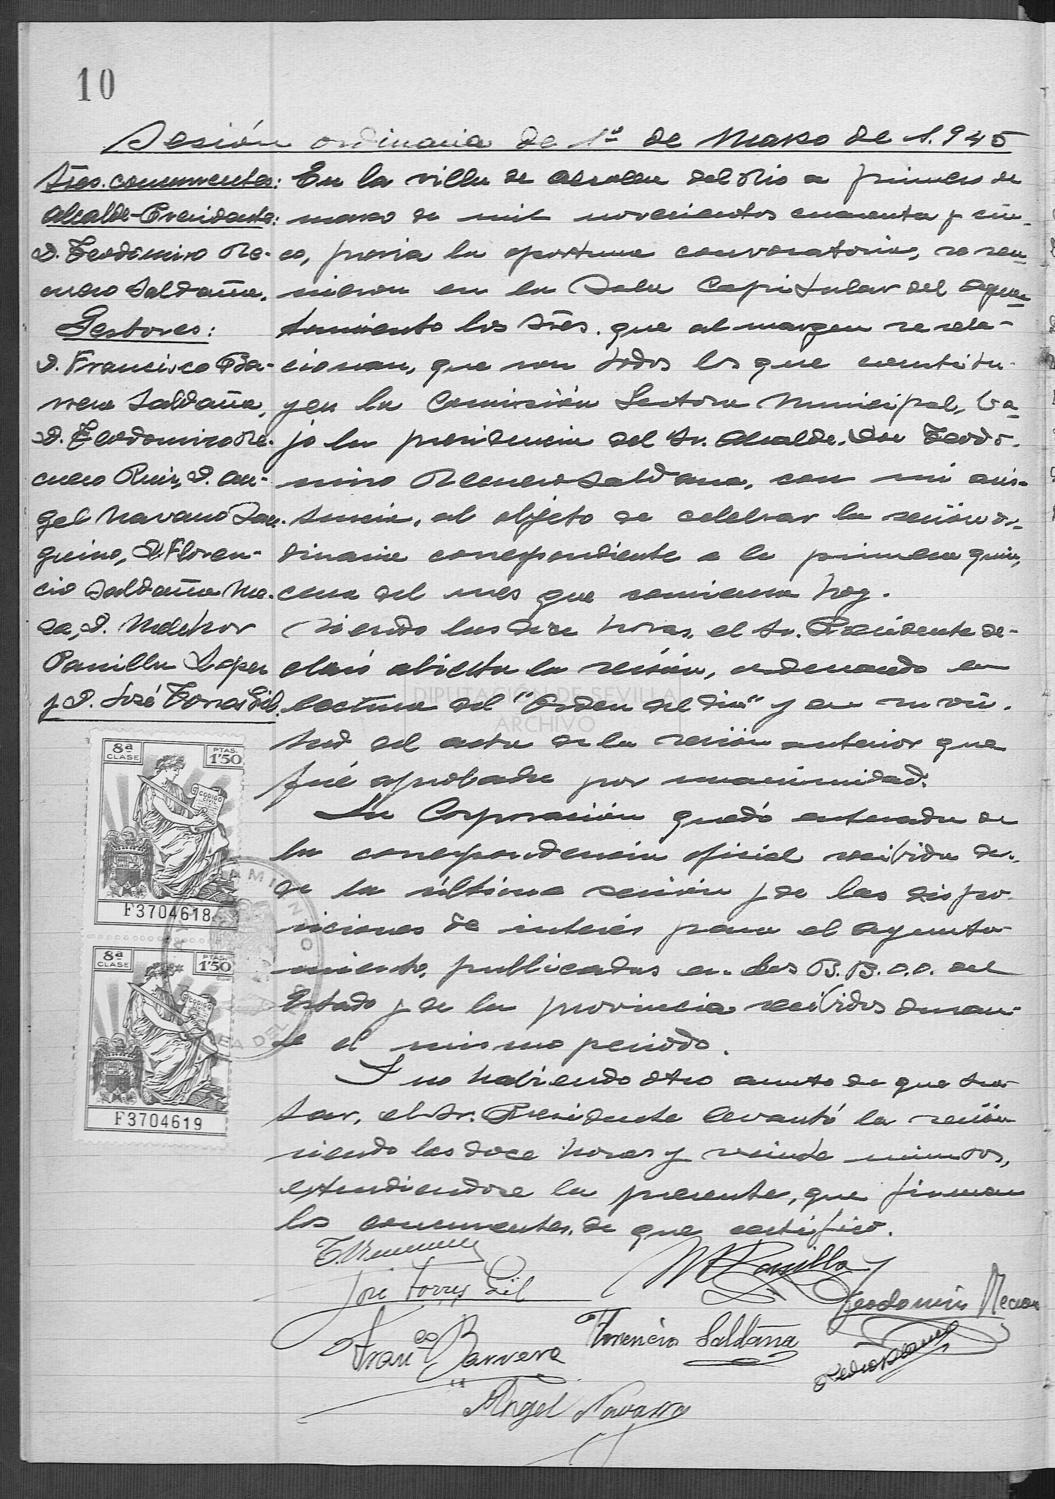 10
Sesión ordinaria de 1º de Marzo de 1.945
Sres. concurrentes:
Alcalde-Presidente:
D. Teodomiro Re-
cuero Saldaña.
Gestores:
D. Francisco Ba-
rrera Saldaña,
D. Teodomiro Re-
cuero Ruiz, D. An-
gel Navarro San-
guino, D. Floren-
cio Saldaña Na-
sa, D. Melchor
Parrilla Lopez
y D. José Torres Gil.
En la villa de Alcolea del Rio a primero de
marzo de mil novecientos cuarenta y cin-
co, previa la oportuna convocatoria, se reu-
nieron en la Sala Capitular del Ayun-
tamiento los Sres. que al margen se rela-
cionan, que son todos los que constitu-
yen la Comisión Gestora Municipal, ba-
jo la presidencia del Sr. Alcalde. Don Teodo-
miro Recuero Saldaña, con mi asis-
tencia, al objeto de celebrar la sesión or-
dinaria correspondiente a la primera quin-
cena del mes que comienza hoy.
Siendo las doce horas, el Sr. Presidente de-
claró abierta la sesión, ordenando la
lectura del "Orden del dia" y en su vir-
tud del acta de la sesión anterior que
fué aprobada por unanimidad.
La Corporación quedó enterada de
la correspondencia oficial recibida des-
de la última sesión y de las dispo-
siciones de interés para el Ayunta-
miento, publicadas en los B.B.O.O. del
Estado y de la provincia recibidos duran-
te el mismo periodo.
Y no habiendo otro asunto de que tra-
tar, el Sr. Presidente levantó la sesión
siendo las doce horas y veinte minutos,
extendiendose la presente, que firman
los concurrentes, de que certifico.
DIPUTACIÓN DE SEVILLA
ARCHIVO
8ª CLASE
PTAS. 1'50
CODIGO
F3704618
8ª CLASE
PTAS. 1'50
F3704619
José Torres Gil
M Parrilla
Teodomiro Recuero
Franco Barrera
Florencio Saldaña
Angel Navarro